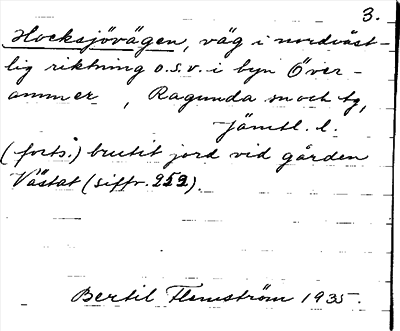 3.
Hocksjövägen, väg i nordväst-
lig riktning o.s.v. i byn Över-
ammer, Ragunda sn och tg,
Jämtl. l.
(forts.) brutit jord vid gården
Västat (siffr. 252).
Bertil Flemström 1935.